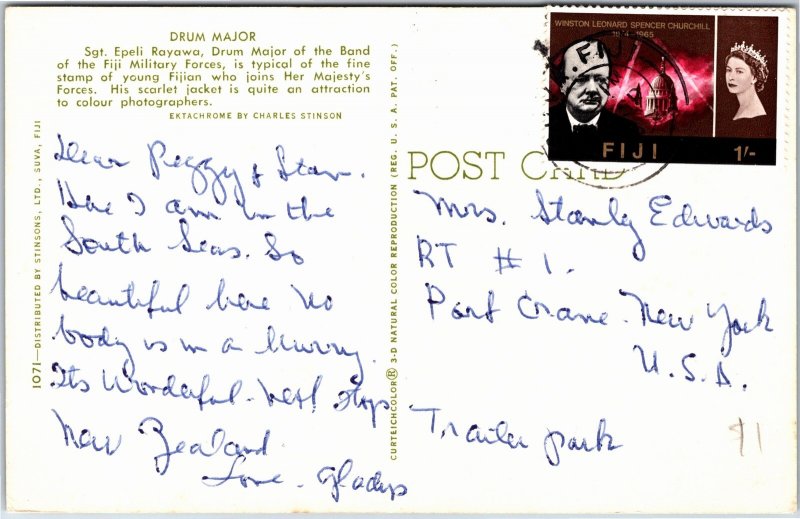 DRUM MAJOR
Sgt. Epeli Rayawa, Drum Major of the Band
of the Fiji Military Forces, is typical of the fine
stamp of young Fijian who joins Her Majesty's
Forces. His scarlet jacket is quite an attraction
to colour photographers.
EKTACHROME BY CHARLES STINSON
1071—DISTRIBUTED BY STINSONS, LTD., SUVA, FIJI
Dear Peggy & Stan.
Here I am in the
South Seas. So
beautiful here No
body is in a hurry.
Its Wonderful. Next stop
New Zealand.
Love. Gladys
CURTEICHCOLOR® 3-D NATURAL COLOR REPRODUCTION (REG. U. S. A. PAT. OFF.)
WINSTON LEONARD SPENCER CHURCHILL
1874-1965
FIJI
FIJI 1/-
POST CARD
Mrs. Stanly Edwards
RT # 1.
Port Crane. New York
U.S.A.
Trailer park
$1